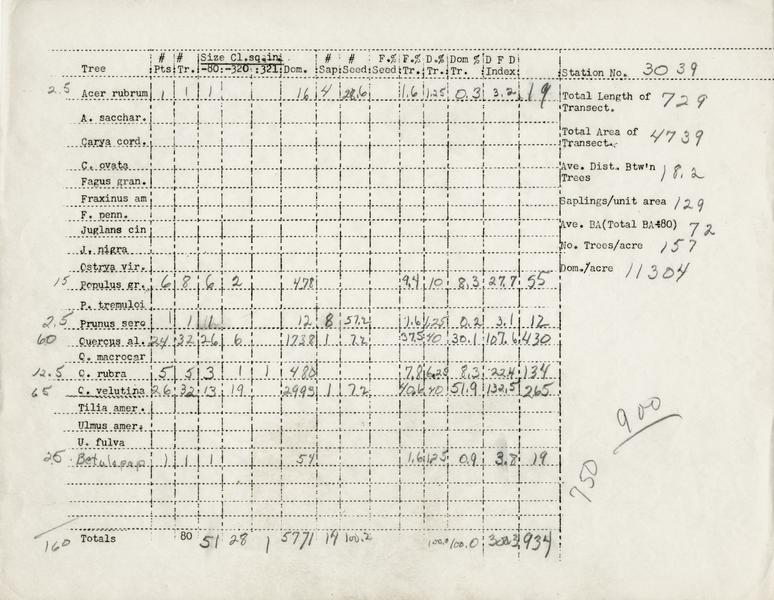 # # Size Cl.sq.in # # F.% F.% D.% Dom % D F D
Tree Pts Tr. -80 -320 321 Dom. Sap Seed Seed Tr. Tr. Tr. Index
2.5 Acer rubrum 1 1 1 16 4 28.6 1.6 1.25 0.3 3.2 19
A. sacchar.
Carya cord.
C. ovata
Fagus gran.
Fraxinus am
F. penn.
Juglans cin
J. nigra
Ostrya vir.
15 Populus gr. 6 8 6 2 478 9.4 10 8.3 27.7 55
P. tremuloi
2.5 Prunus sero 1 1 12 8 57.2 1.6 1.25 0.2 3.1 12
60 Quercus al. 24 32 26 6 1738 1 7.2 37.5 40 30.1 107.6 430
Q. macrocar
12.5 Q. rubra 5 5 3 1 1 480 7.8 6.25 8.3 22.4 134
65 Q. velutina 26 32 13 19 2993 1 7.2 40.6 40 51.9 132.5 265
Tilia amer.
Ulmus amer.
U. fulva
25 Betula pap 1 1 1 54 1.6 1.25 0.9 3.8 19
160 Totals 80 51 28 1 5771 14 100.2 100.0 100.0 300.3 934
Station No. 3039
Total Length of 729
Transect.
Total Area of 4739
Transect.
Ave. Dist. Btw'n 18.2
Trees
Saplings/unit area 129
Ave. BA(Total BA÷80) 72
No. Trees/acre 157
Dom./acre 11304
900
750